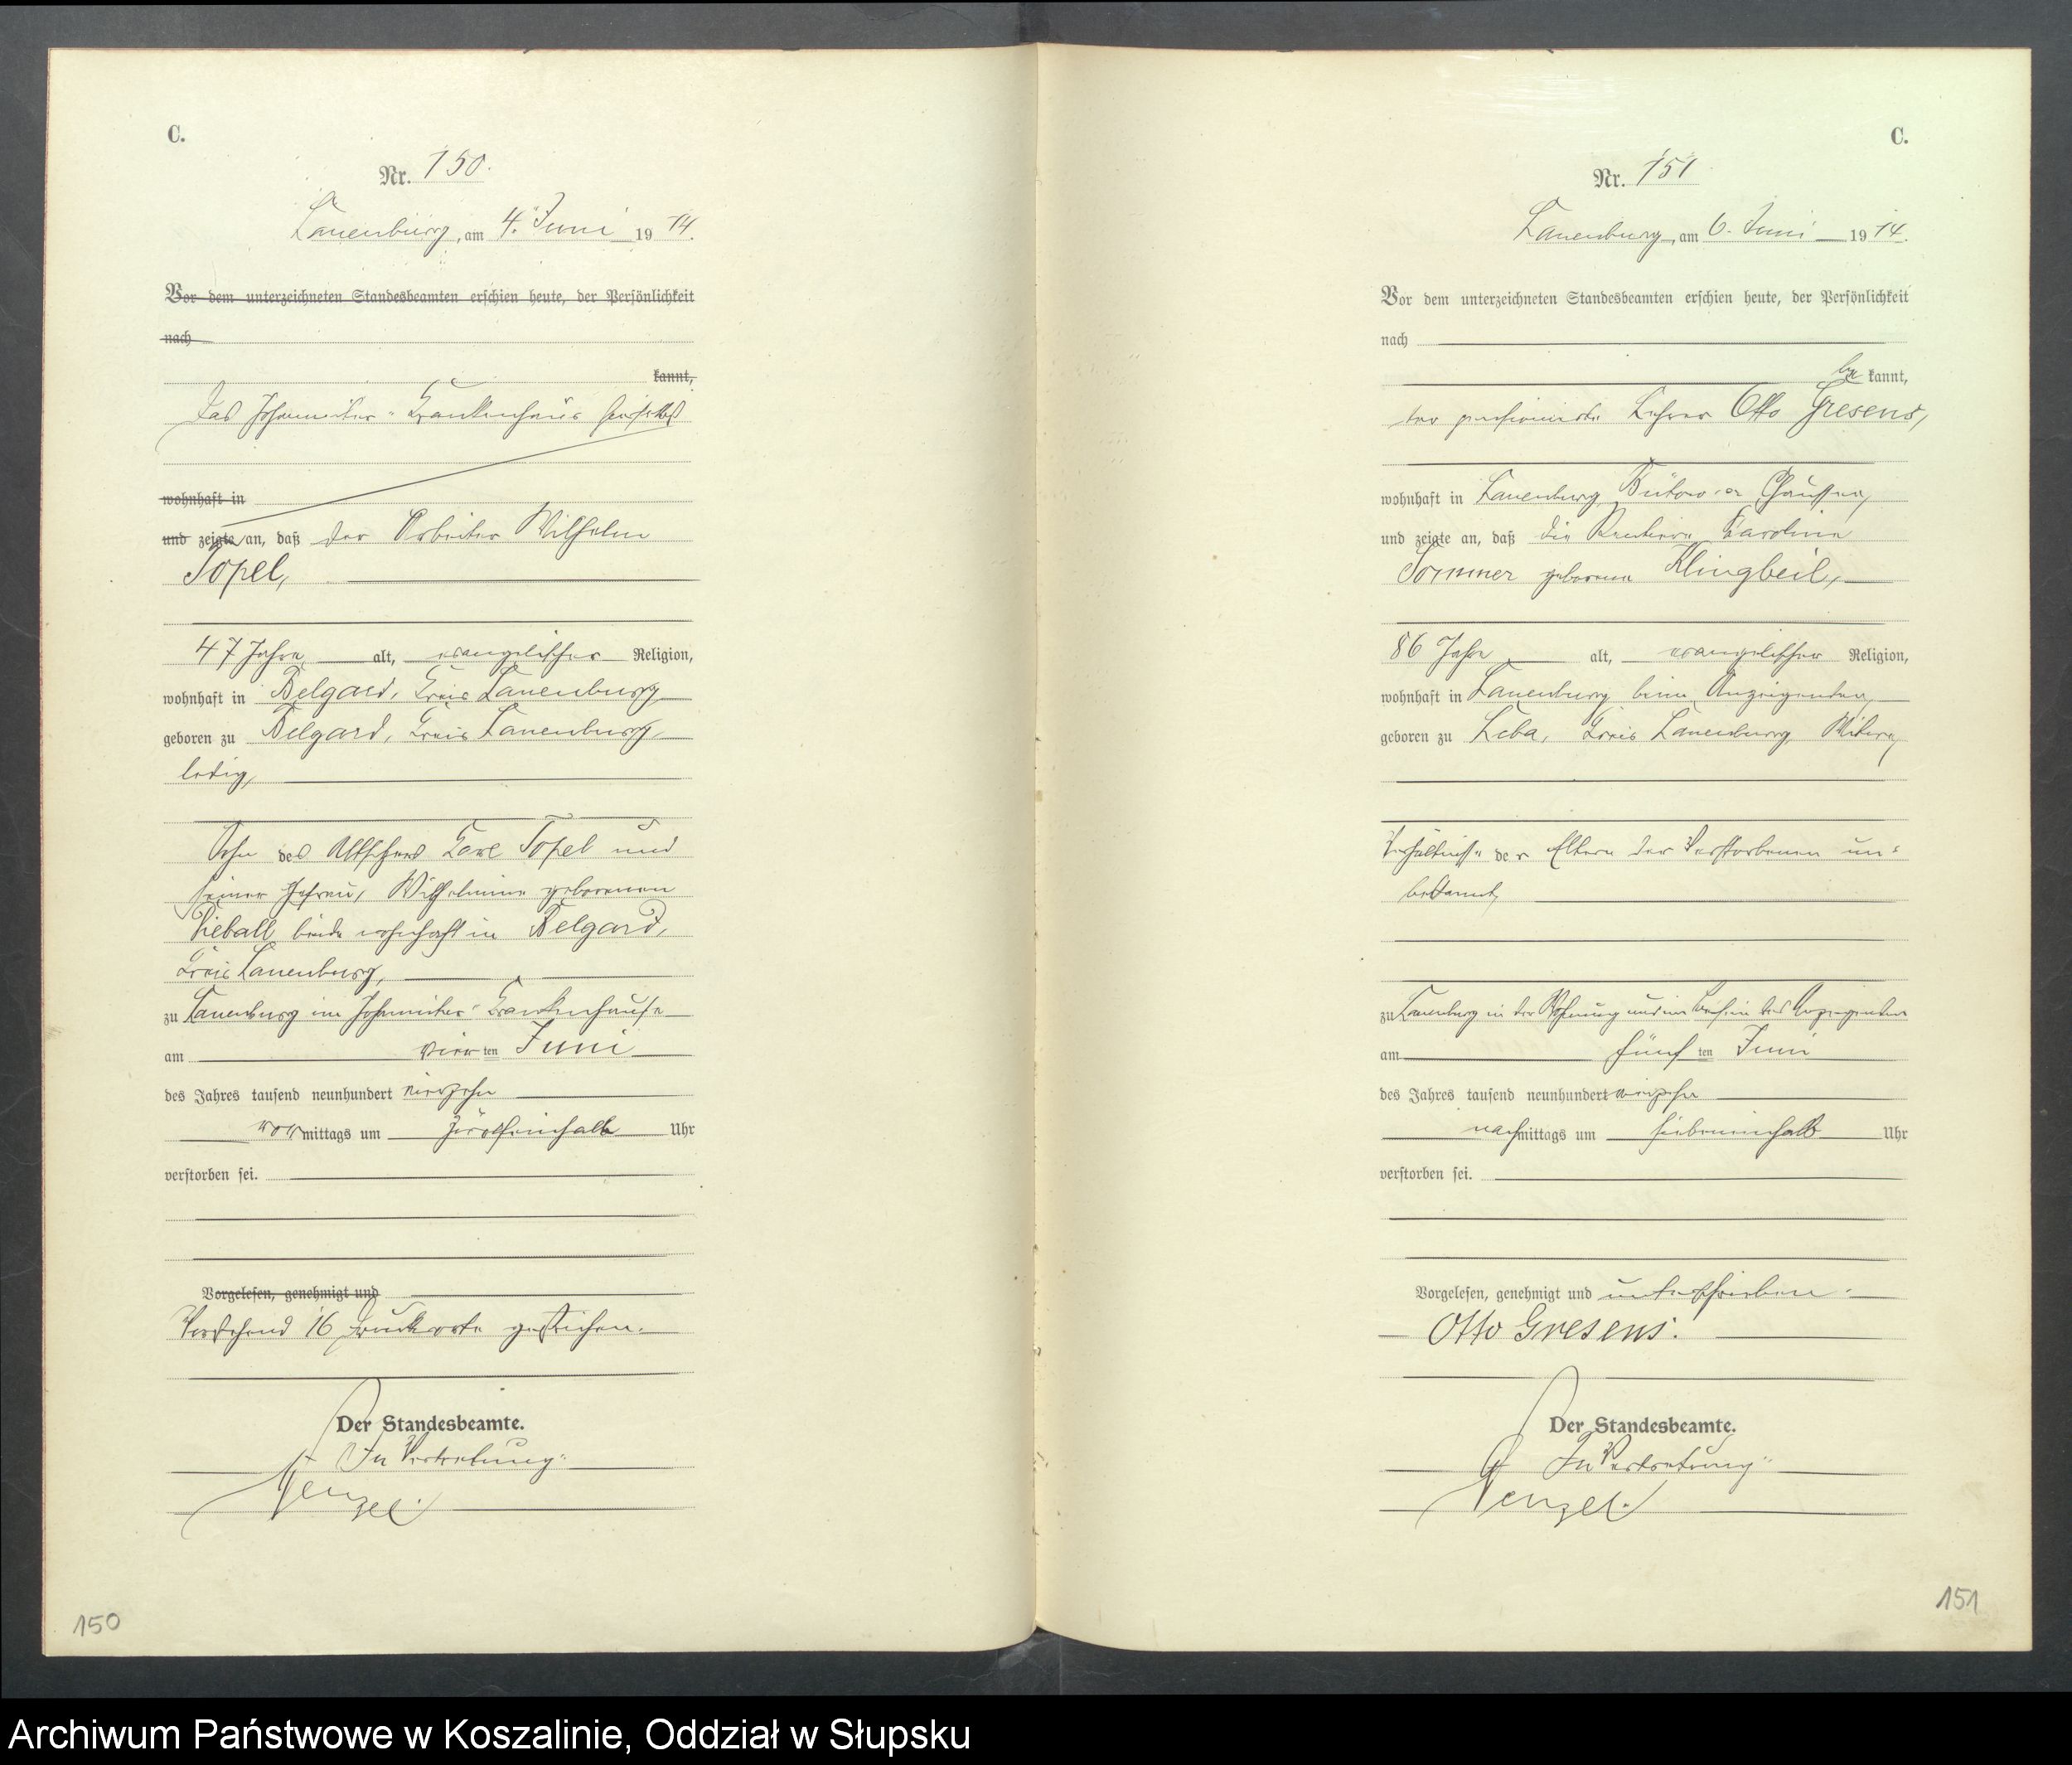 C.
Nr. 150.
Lauenburg, am 4. Juni 1914.
Vor dem unterzeichneten Standesbeamten erschien heute, der Persönlichkeit
nach
kannt,
Das Johanniter-Krankenhaus hierselbst
wohnhaft in
und zeigte an, daß der Arbeiter Wilhelm
Topel,
47 Jahre alt, evangelischer Religion,
wohnhaft in Belgard, Kreis Lauenburg
geboren zu Belgard, Kreis Lauenburg,
ledig,
Sohn des Altsitzers Karl Topel und
seiner Ehefrau, Wilhelmine geborenen
beide wohnhaft in Belgard,
Kreis Lauenburg,
zu Lauenburg im Johanniter-Krankenhause
am vierten Juni
des Jahres tausend neunhundert vierzehn
vormittags um zwölfeinhalb Uhr
verstorben sei.
Vorgelesen, genehmigt und
Vorstehend 16 Druckworte gestrichen.
Der Standesbeamte.
In Vertretung:
Wenzel.
150
C.
Nr. 151
Lauenburg, am 6. Juni 1914.
Vor dem unterzeichneten Standesbeamten erschien heute, der Persönlichkeit
nach
be kannt,
der pensionierte Lehrer Otto Gresens,
wohnhaft in Lauenburg, Bütower Chaussee,
und zeigte an, daß die Rentiere Karoline
Sommer geborene Klingbeil,
86 Jahre alt, evangelischer Religion,
wohnhaft in Lauenburg beim Anzeigenden,
geboren zu Leba, Kreis Lauenburg, Witwe,
Verhältnisse der Eltern der Verstorbenen un-
bekannt,
zu Lauenburg in der Wohnung und im Beisein des Anzeigenden
am fünften Juni
des Jahres tausend neunhundert vierzehn
nachmittags um siebeneinhalb Uhr
verstorben sei.
Vorgelesen, genehmigt und unterschrieben.
Otto Gresens.
Der Standesbeamte.
In Vertretung:
Wenzel.
151
Archiwum Państwowe w Koszalinie, Oddział w Słupsku